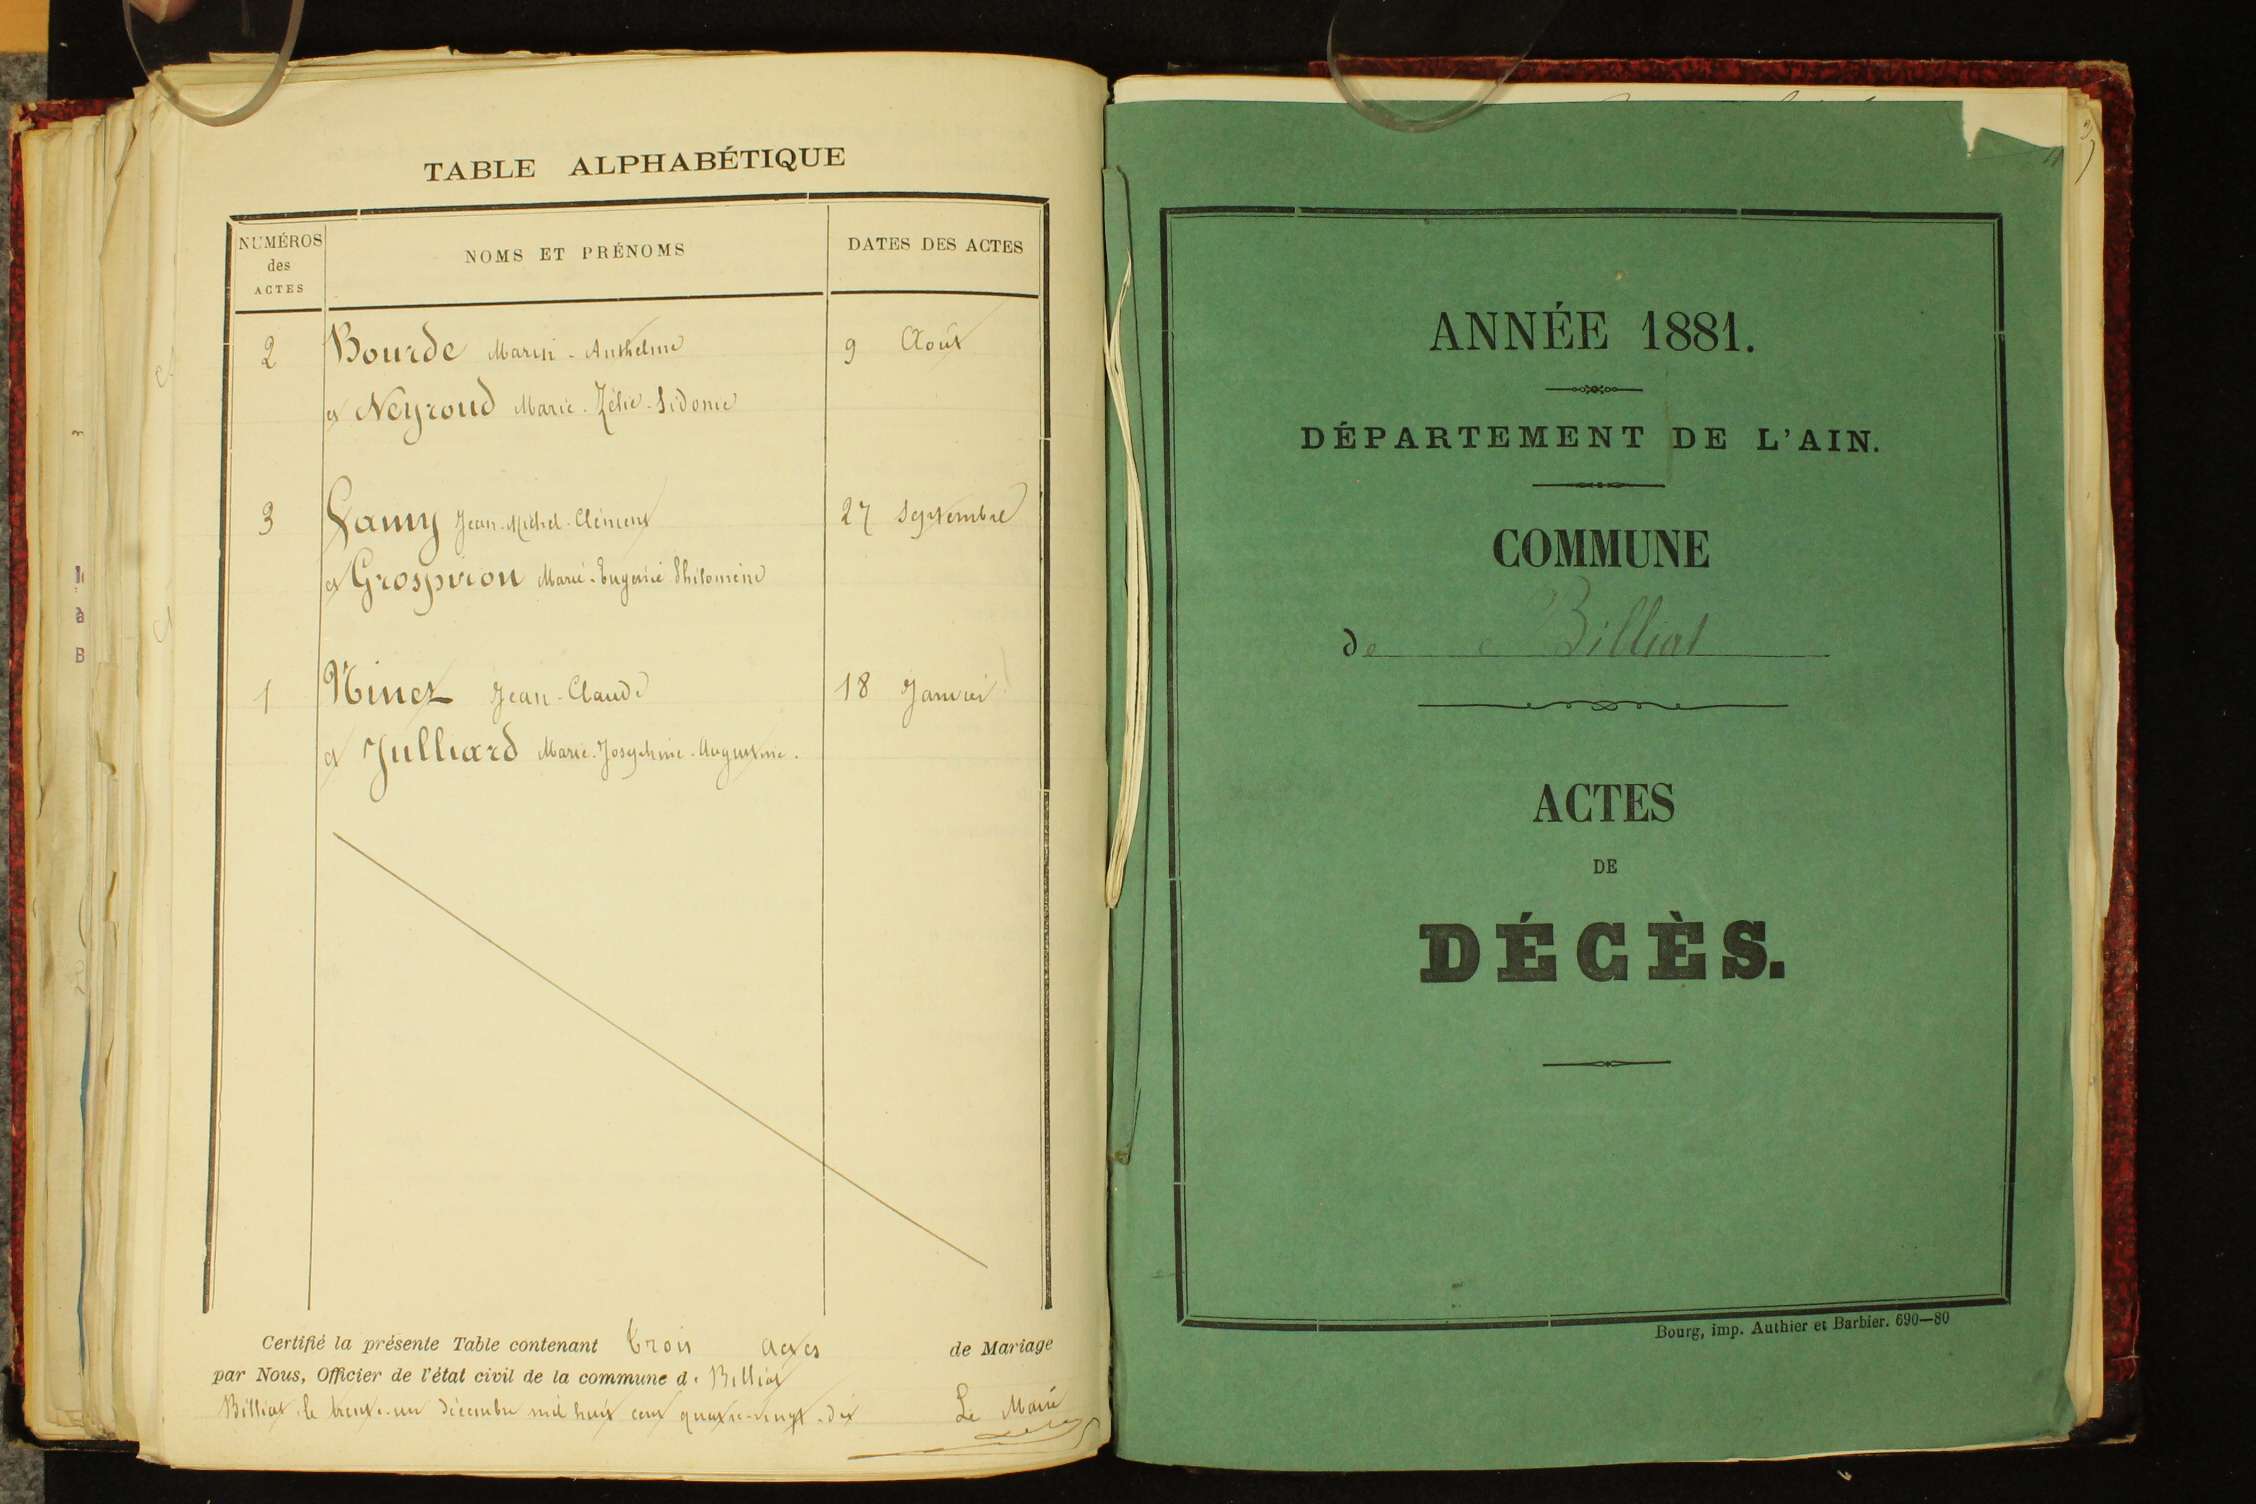 TABLE ALPHABÉTIQUE
NUMÉROS des ACTES
NOMS ET PRÉNOMS
DATES DES ACTES
2 Bourde Marin-Anthelme 9 Août
et Neyroud Marie-Zélie-Sidonie
3 Lamy Jean-Michel-Clément 27 Septembre
et Grospiron Marie-Eugénie Philomène
1 Ninet Jean-Claude 18 Janvier
et Julliard Marie-Josephine-Augustine.
Certifié la présente Table contenant trois actes de Mariage
par Nous, Officier de l'état civil de la commune d. Billiat
Billiat le trente-un décembre mil huit cent quatre-vingt-dix Le Maire
ANNÉE 1881.
DÉPARTEMENT DE L'AIN.
COMMUNE
de Billiat
ACTES
DE
DÉCÈS.
Bourg, imp. Authier et Barbier. 690—80